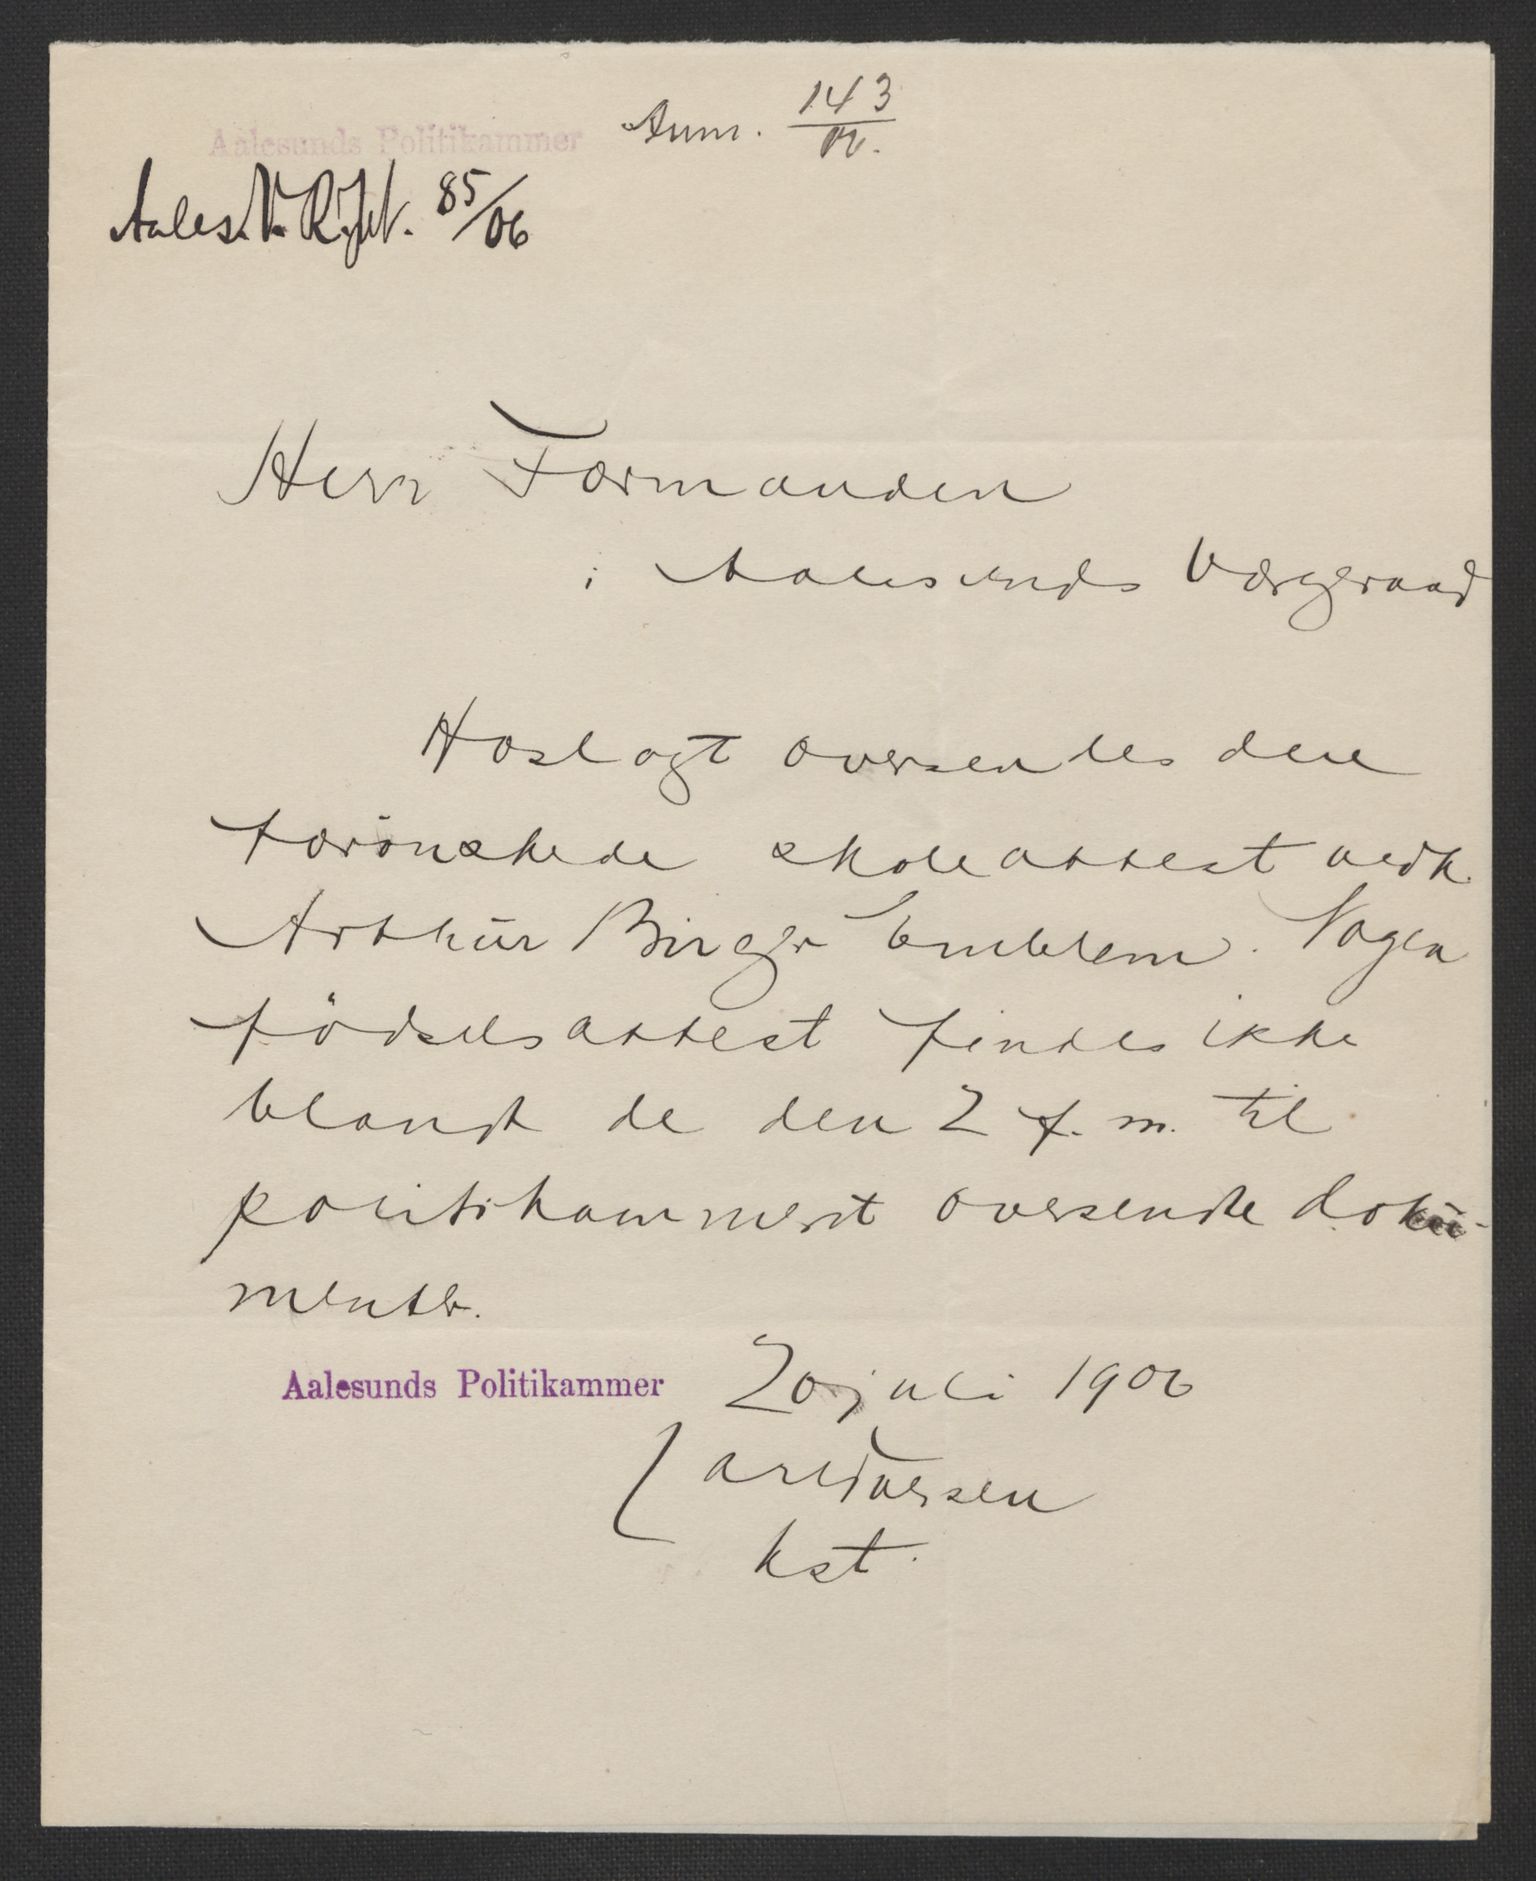 Aalesunds Politikammer Anm. 143/06.
Aales. V. R. Jnl. 85/06
Herr Formanden
i Aalesunds Værgeraad
Hoslagt oversendes den
forönskede skoleattest vedk.
Arthur Birger Emblem. Nogen
födselsattest findes ikke
blandt de den 2 f. m. til
politikammeret oversendte doku-
menter.
Aalesunds Politikammer 20 juli 1906
kst.